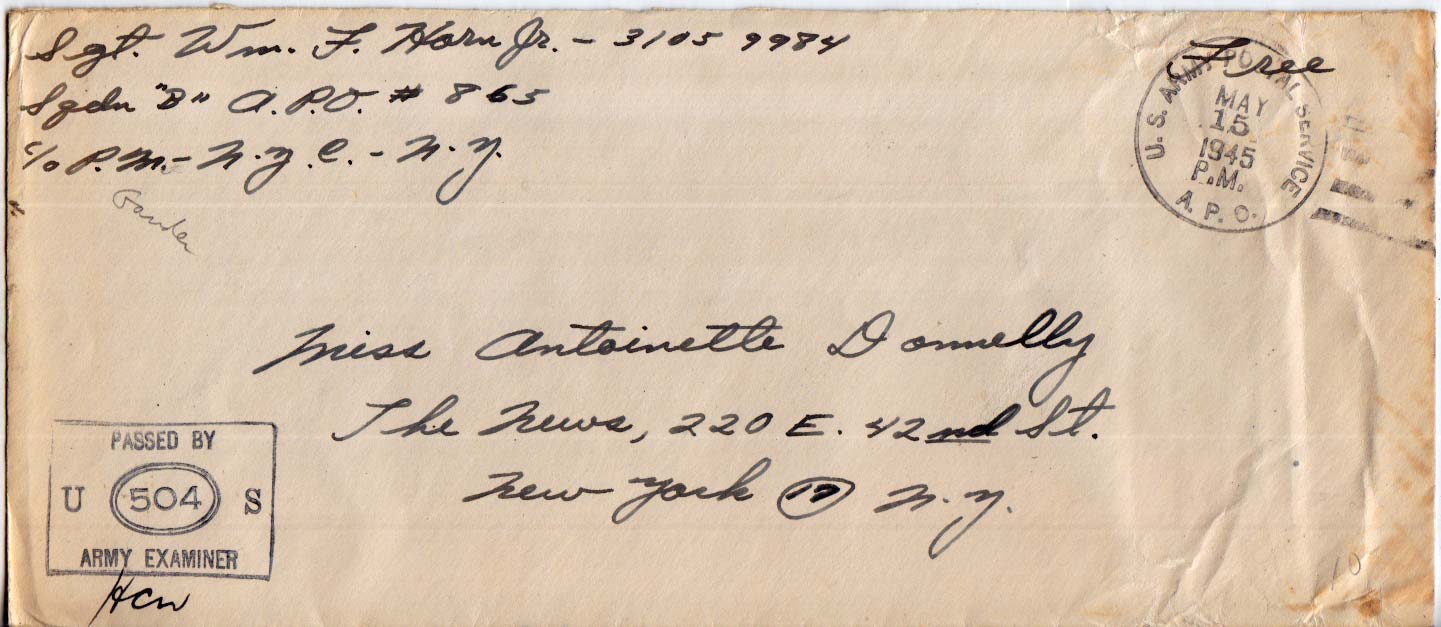 Sgt. Wm. F. Horn Jr. - 3105 9984
Sqdn "B" A.P.O. # 865
c/o P.M. - N.Y.C. - N.Y.
Gander
Free
U. S. ARMY POSTAL SERVICE
MAY
15
1945
P.M.
A. P. O.
Miss Antoinette Donnelly
The News, 220 E. 42nd St.
New York 17 N.Y.
PASSED BY
U 504 S
ARMY EXAMINER
HCW
10